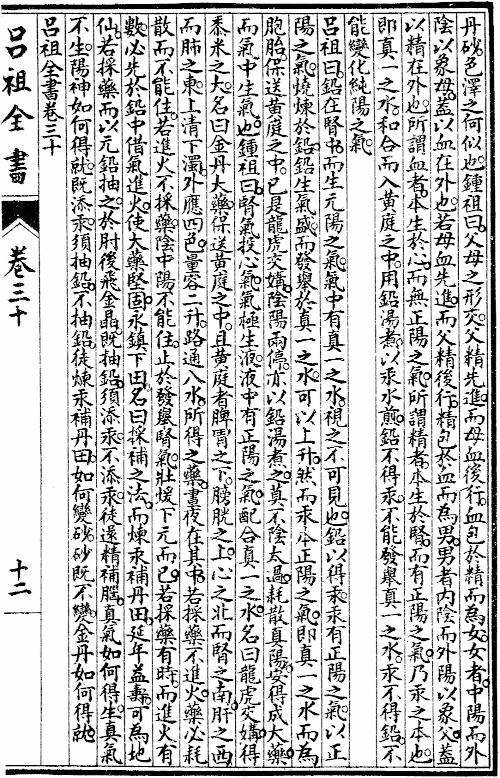 丹砂色澤之何似也鍾祖曰父母之形交父精先進而母血後行血包於精而為女女者中陽而外
陰以象母蓋以血在外也若母血先進而父精後行精包於血而為男男者內陰而外陽以象父蓋
以精在外也所謂血者本生於心而無正陽之氣所謂精者本生於腎而有正陽之氣乃汞之本也
即真一之水和合而入黃庭之中用鉛湯煮以汞水煎鉛不得汞不能發舉真一之水汞不得鉛不
能變化純陽之氣
呂祖曰鉛在腎中而生元陽之氣氣中有真一之水視之不可見也鉛以得汞汞有正陽之氣以正
陽之氣燒煉於鉛鉛生氣盛而發舉於真一之水可以上升然而汞本正陽之氣即真一之水而為
胞胎保送黃庭之中已是龍虎交媾陰陽兩停亦以鉛湯煮之莫不陰太過耗散真陽安得成大藥
而氣中生氣也鍾祖曰腎氣投心氣氣極生液液中有正陽之氣配合真一之水名曰龍虎交媾得
黍米之大名曰金丹大藥保送黃庭之中且黃庭者脾胃之下膀胱之上心之北而腎之南肝之西
而肺之東上清下濁外應四色量容二升路通八水所得之藥晝夜在其中若採藥不進火藥必耗
散而不能住若進火不採藥陰中陽不能住止於發舉腎氣壯煖下元而已若採藥有時而進火有
數必先於鉛中借氣進火使大藥堅固永鎮下田名曰採補之法而煉汞補丹田延年益壽可為地
仙若採藥而以元鉛抽之於肘後飛金晶既抽鉛須添汞不添汞徒還精補腦真氣如何得生真氣
不生陽神如何得就既添汞須抽鉛不抽鉛徒煉汞補丹田如何變砂砂既不變金丹如何得就
呂祖全書卷三十
呂祖全書
卷三十
十二